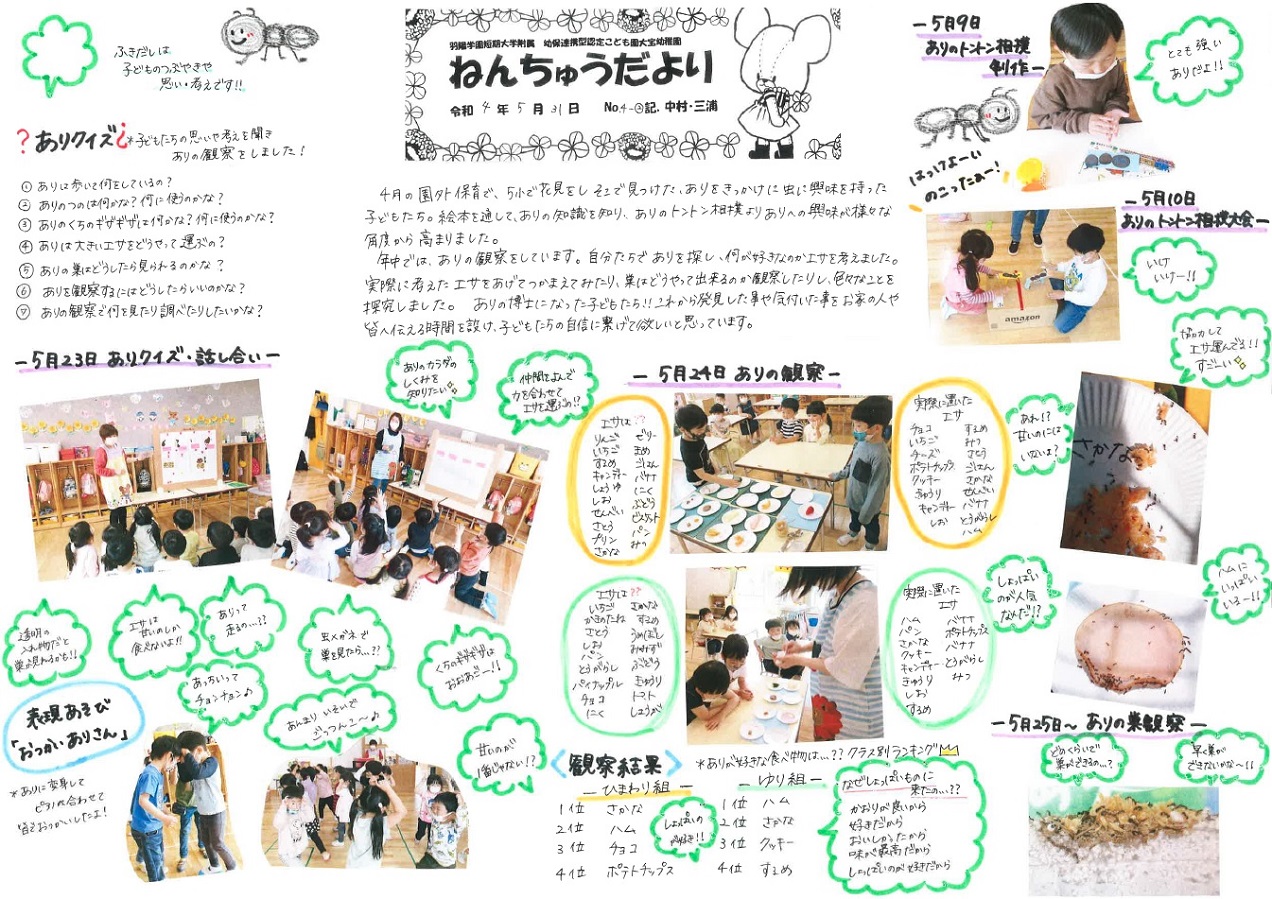 ふきだしは
子どものつぶやきや
思い・考えです!!
羽陽学園短期大学附属 幼保連携型認定こども園大宝幼稚園
ねんちゅうだより
令和 4 年 5 月 31 日 No.4-②記. 中村・三浦
? ありクイズ¿ *子どもたちの思いや考えを聞き
ありの観察をしました!
① ありは歩いて何をしているの?
② ありのつのは何かな?何に使うのかな?
③ ありのくちのギザギザは何かな?何に使うのかな?
④ ありは大きいエサをどうやって運ぶの?
⑤ ありの巣はどうしたら見られるのかな?
⑥ ありを観察するにはどうしたらいいのかな?
⑦ ありの観察で何を見たり調べたりしたいかな?
4月の園外保育で、5小で花見をしそこで見つけた、ありをきっかけに虫に興味を持った
子どもたち。絵本を通して、ありの知識を知り、ありのトントン相撲よりありへの興味が様々な
角度から高まりました。
年中では、ありの観察をしています。自分たちでありを探し、何が好きなのかエサを考えました。
実際に考えたエサをあげてつかまえてみたり、巣はどうやって出来るのか観察したりし、色々なことを
探究しました。 ありの博士になった子どもたち!!これから発見した事や気付いた事をお家の人や
皆へ伝える時間を設け、子どもたちの自信に繋げて欲しいと思っています。
-5月9日
ありのトントン相撲
制作-
とても強い
ありだよ!!
はっけよーい
のこったぁー!
5月10日
ありのトントン相撲大会-
amazon
いけ
いけー!!
協力して
エサ運んでる!!
すごーい
-5月23日 ありクイズ・話し合い-
ありのカラダの
しくみを
知りたい
仲間をよんで
力を合わせて
エサを運ぶの!?
透明の
入れ物だと
巣が見れるかも!!
エサは
甘いのしか
食べないよ!!
ありって
走るの...??
虫メガネで
巣を見たら...??
くちのギザギザは
おおあごー!!
あっちいって
チョンチョン♪
あんまりいそいで
ごっつんこ〜♪
甘いのが
1番じゃない!?
表現あそび
「おつかいありさん」
*ありに変身して
ピアノに合わせて
皆でおつかいしたよ!
- 5月24日 ありの観察-
エサは??
りんご ゼリー
いちご まめ
するめ ごはん
キャンディー バナナ
しょうゆ にく
しお ぶどう
せんべい ビスケット
さとう パン
プリン みつ
さかな
実際に置いた
エサ
チョコ するめ
いちご みつ
チーズ さとう
ポテトチップス ごはん
クッキー さかな
きゅうり せんべい
キャンディー バナナ
しお とうがらし
ハム
あれ!?
甘いのには
いないよ?
さかな
エサは??
いちご さかな
かきのたね するめ
さとう うめぼし
しお みみず
パン ぶどう
とうがらし きゅうり
パイナップル トースト
チョコ しょうが
にく
実際に置いた
エサ
ハム バナナ
パン ポテトチップス
さかな バナナ
クッキー とうがらし
キャンディー みつ
きゅうり
しお
するめ
しょっぱい
のが人気
なんだ!?
ハムに
いっぱい
いるー!!
<観察結果> *ありが好きな食べ物は...?? クラス別ランキング
- ひまわり組 -
1位 さかな
2位 ハム
3位 チョコ
4位 ポテトチップス
しょっぱいの
が好き!!
- ゆり組 -
1位 ハム
2位 さかな
3位 クッキー
4位 するめ
なぜしょっぱいものに
来たの...??
かおりが良いから
好きだから
おいしかったから
味が最高だから
しょっぱいのが好きだから
-5月25日〜 ありの巣観察 -
どのくらいで
巣ができるの...?
早く巣が
できないかな〜!!